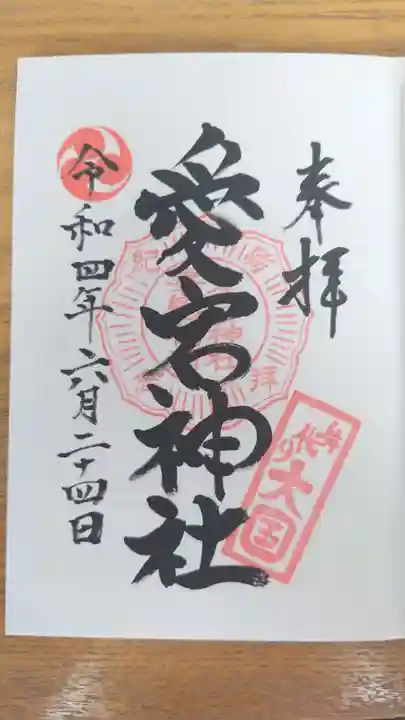 奉拝
愛宕神社
令和四年六月二十四日
参拝紀念
大国